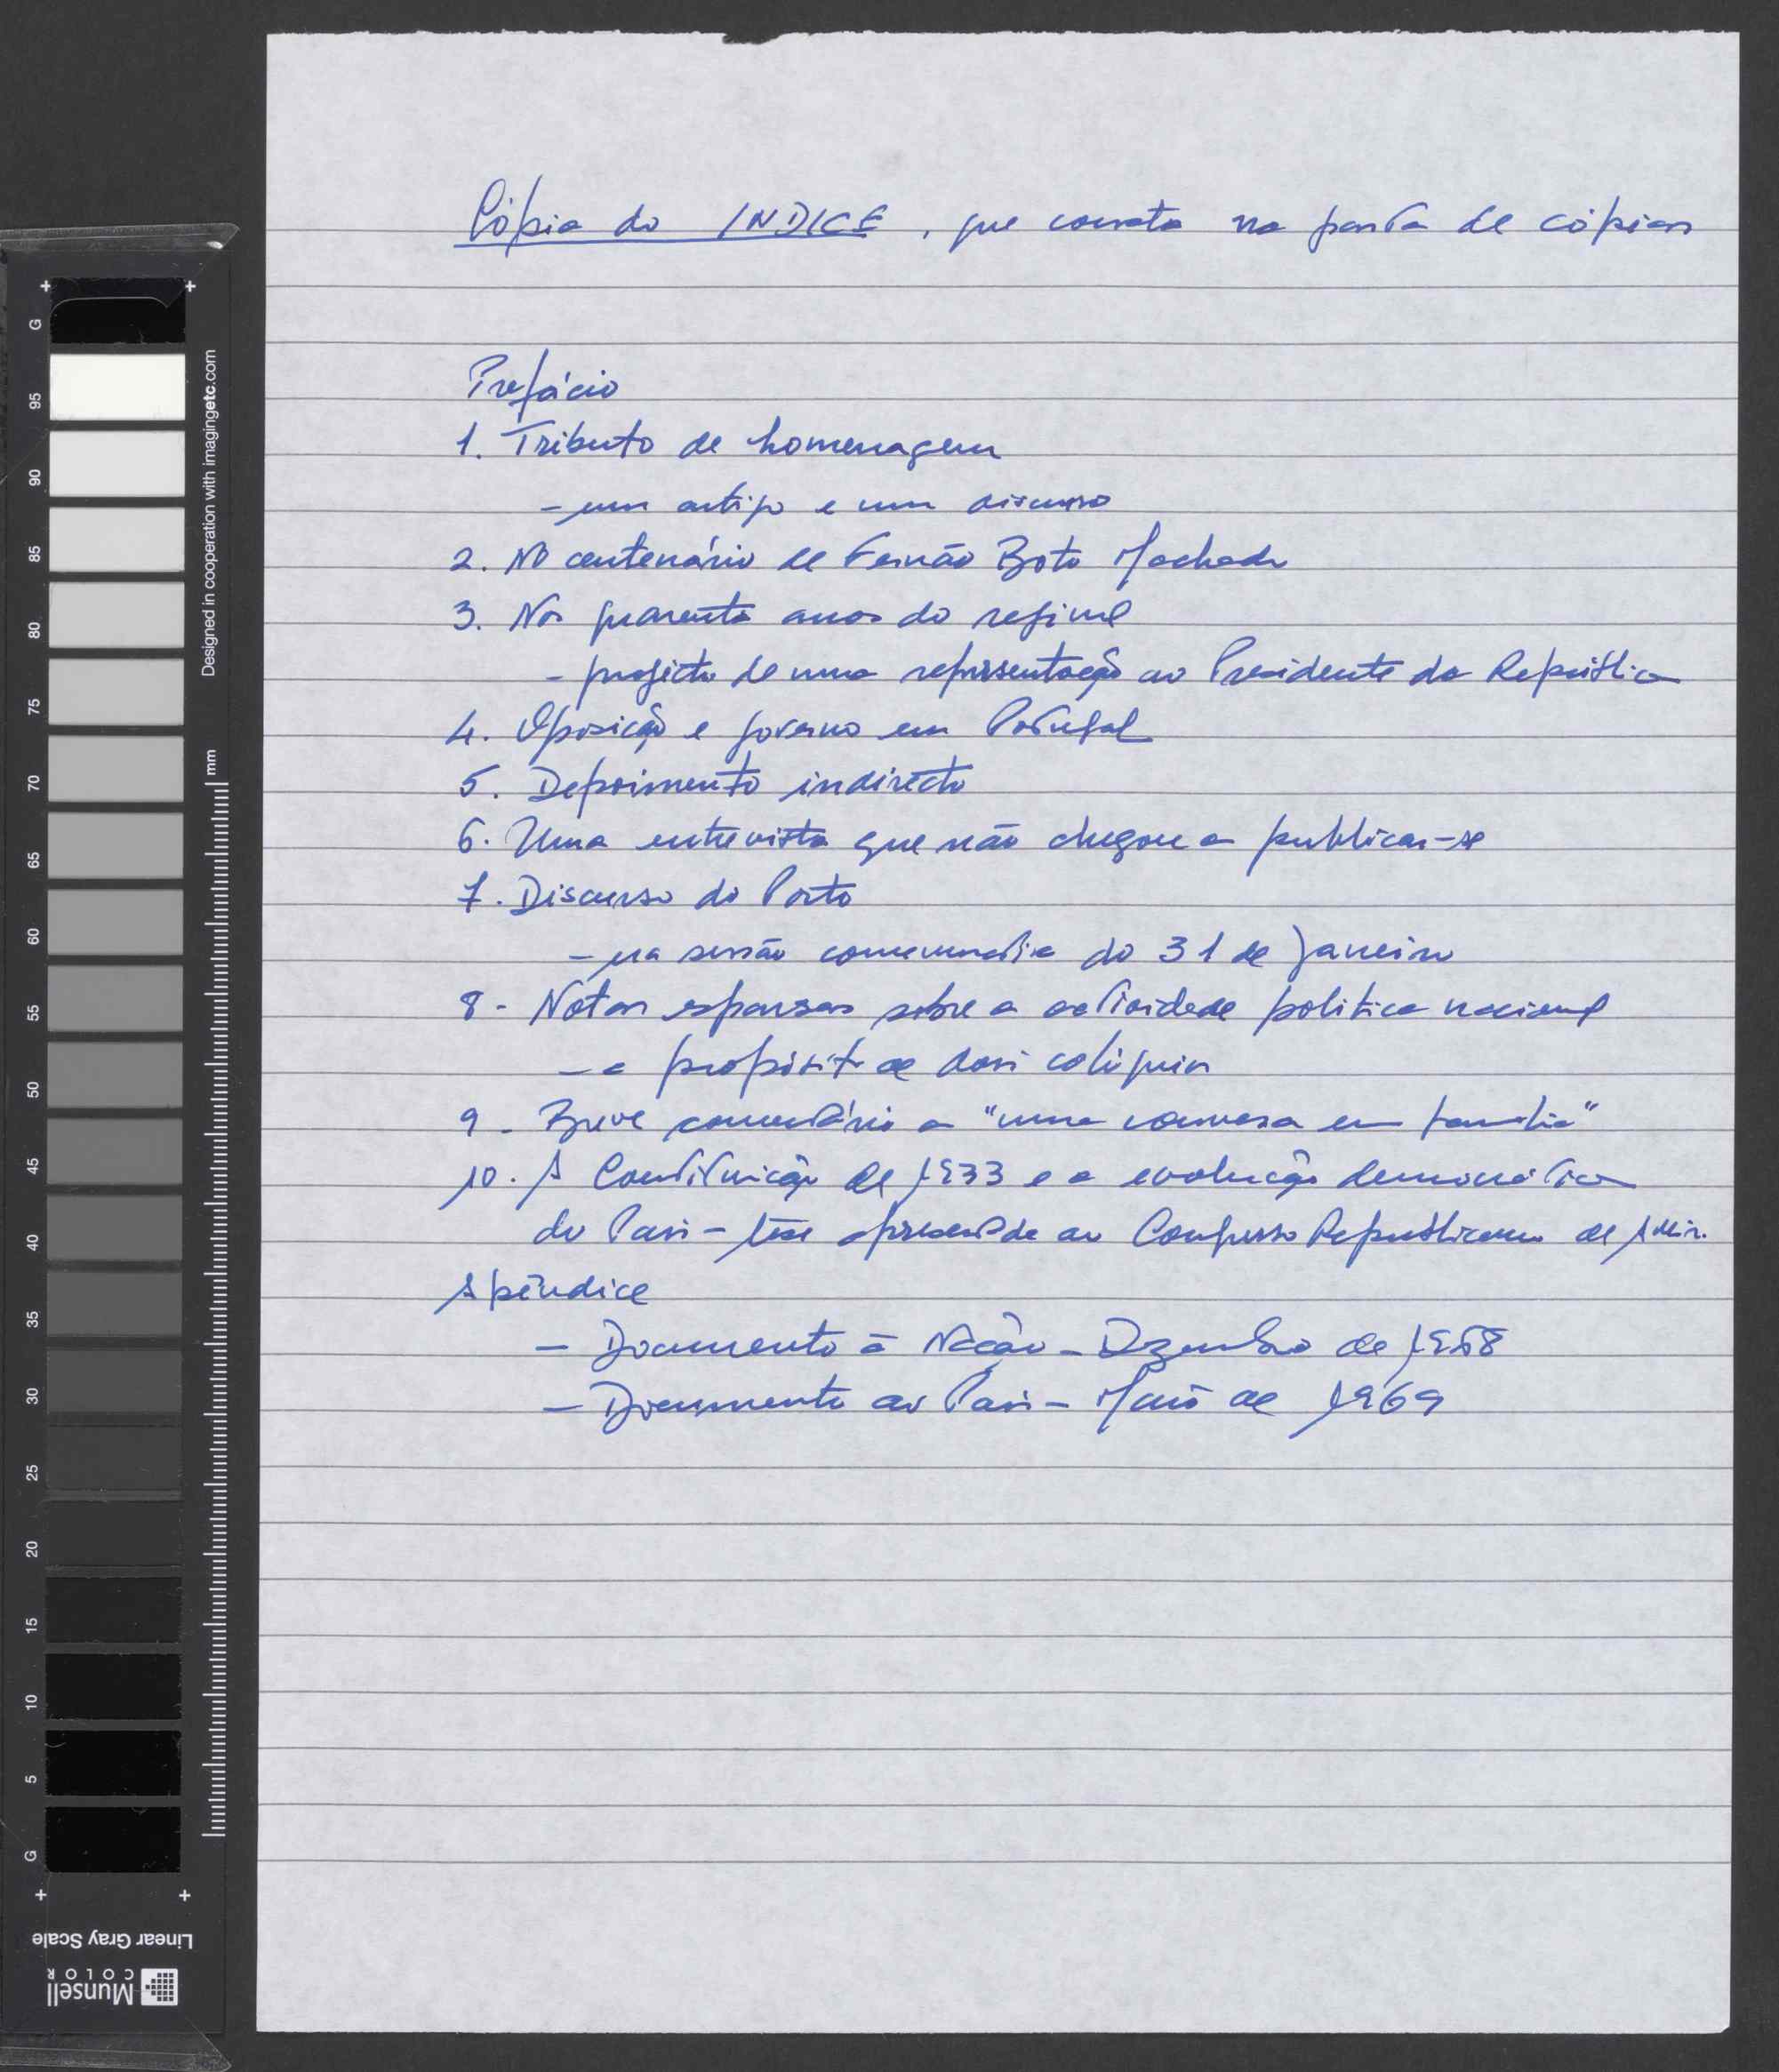 Cópia do INDICE, que consta na pasta de cópias
Prefácio
1. Tributo de homenagem
- um artigo e um discurso
2. No centenário de Fernão Boto Machado
3. Nos quarenta anos do regime
- projecto de uma representação ao Presidente da República
4. Oposição e governo em Portugal
5. Depoimento indirecto
6. Uma entrevista que não chegou a publicar-se
7. Discurso do Porto
- na sessão comemorativa do 31 de Janeiro
8 - Notas esparsas sobre a actividade politica nacional
- a propósito de dois colóquios
9 - Breve comentário a "uma conversa em família"
10. A Constituição de 1933 e a evolução democrática
do País - tese apresentada ao Congresso Republicano de Aveiro.
Apêndice
- Documento à Nação - Dezembro de 1968
- Documento ao País - Maio de 1969
G
95
90
85
80
75
70
65
60
55
50
45
40
35
30
25
20
15
10
5
G
Designed in cooperation with imagingetc.com
mm
Linear Gray Scale
Munsell
COLOR